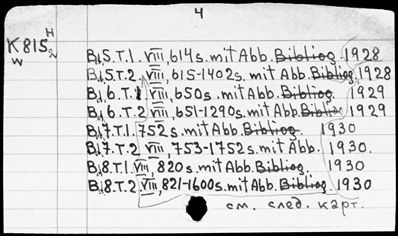 4
K 815 H/2
W
Bd,5.T.1. VIII, 614s. mit Abb. Bibliog. 1928
Bd,5.T.2. VIII, 615-1402s. mit Abb. Bibliog. 1928
Bd,6.T.1 VIII, 650s. mit Abb. Bibliog. 1929
Bd,6.T.2 VIII, 651-1290s. mit Abb. Bibliog. 1929
Bd,7.T.1. 752s. mit Abb. Bibliog. 1930
Bd,7.T.2. VIII, 753-1752s. mit Abb. 1930
Bd,8.T.1. VIII, 820s. mit Abb. Bibliog. 1930
Bd,8.T.2. VIII, 821-1600s. mit Abb. Bibliog. 1930
см. след. карт.